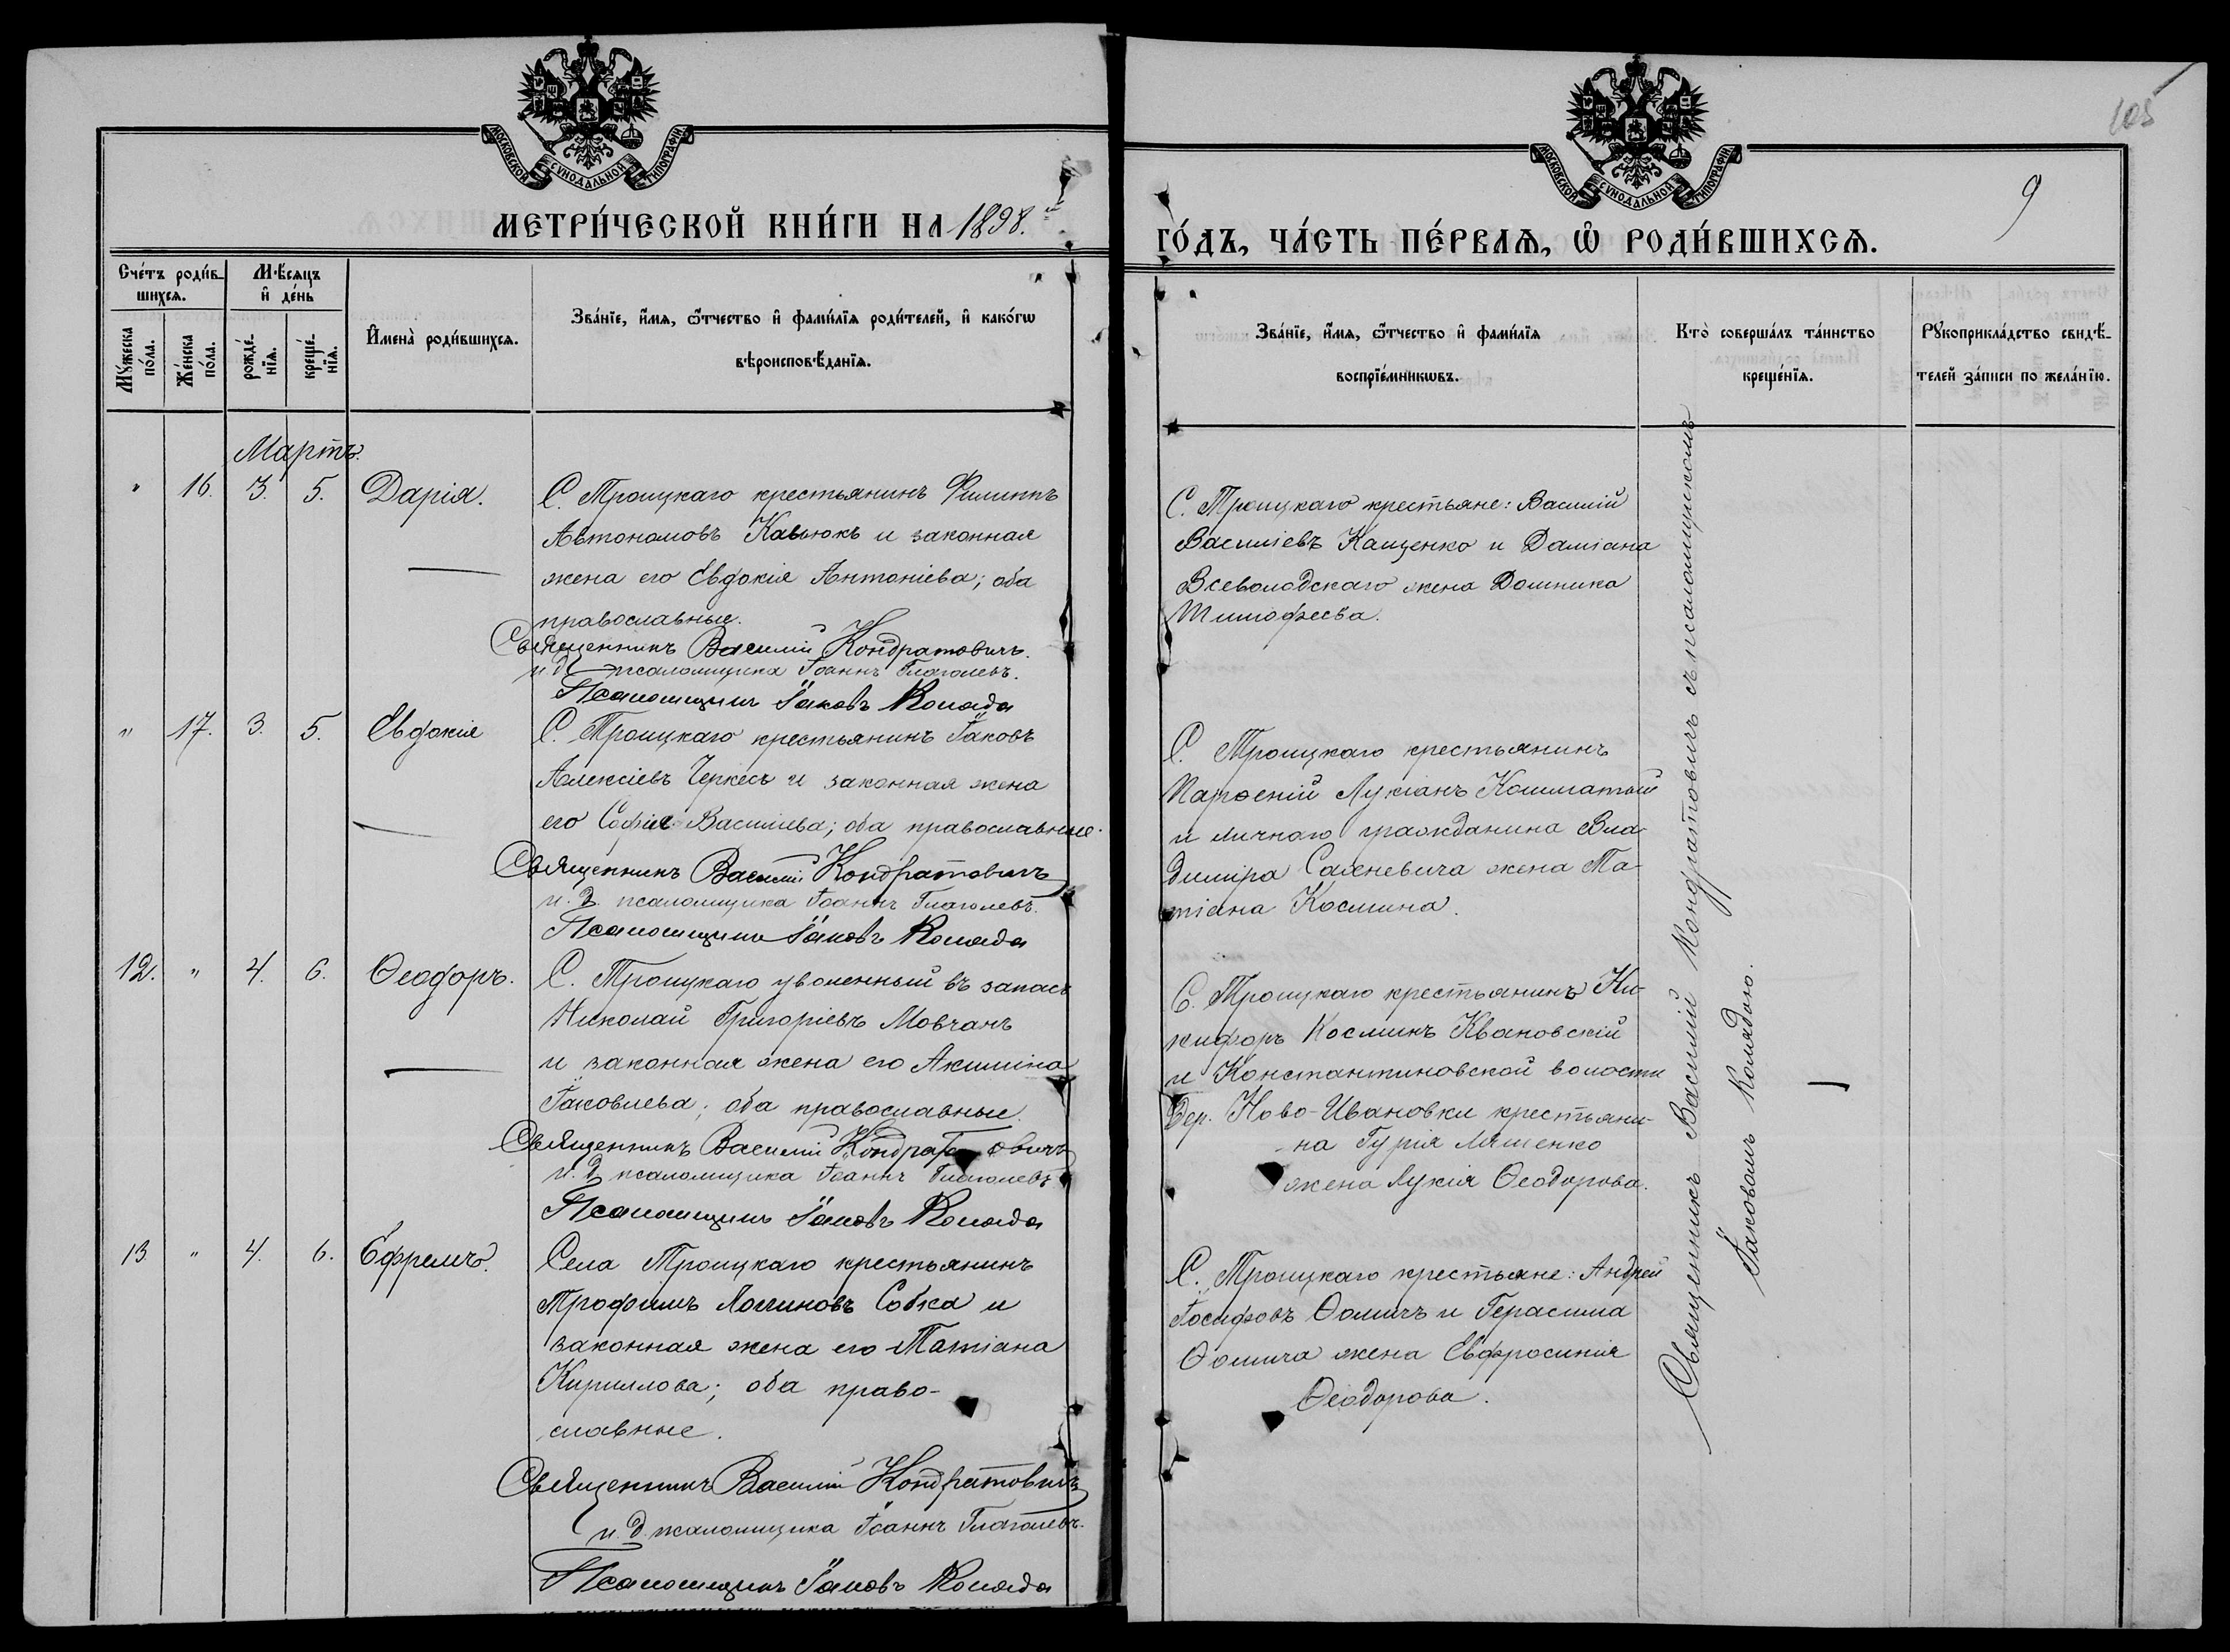 МОСКОВСКОЙ СУНОДАЛЬНОЙ ТИПОГРАФІИ
МОСКОВСКОЙ СУНОДАЛЬНОЙ ТИПОГРАФІИ
105
9
МЕТРИ́ЧЕСКОЙ КНИ́ГИ НА 1898.й
ГО́ДЪ, ЧА́СТЬ ПЕ́РВАЯ, Ѡ҆ РОДИ́ВШИХСЯ.
Сче́тъ роди́в-
шихся.
Мꙋ́жеска по́ла.
Же́нска по́ла.
Мѣ́сяцъ
и҆ де́нь
рожде́нїя.
креще́нїя.
И҆мена̀ роди́вшихся.
Зва́нїе, и҆́мя, ѻ҆́тчество и҆ фами́лїя роди́телей, и҆ како́гѡ
вѣроисповѣ́данїя.
Зва́нїе, и҆́мя, ѻ҆́тчество и҆ фами́лїя
воспрїе́мникѡвъ.
Кто̀ соверша́лъ та́инство
креще́нїя.
Рꙋкоприкла́дство свидѣ́-
телей за́писи по жела́нїю.
Мартъ.
" 16. 3. 5. Дарія.
С. Троицкаго крестьянинъ Филиппъ
Автономовъ Кавьюкъ и законная
жена его Евдокія Антоніева; оба
православные.
Священникъ Василій Кондратовичъ.
и. д. псаломщика Іоаннъ Глаголевъ.
Псаломщикъ Іаковъ Коляда
С. Троицкаго крестьяне: Василій
Василіевъ Кащенко и Даміана
Всеволодскаго жена Домника
Тимофеева.
" 17. 3. 5. Евдокія
С. Троицкаго крестьянинъ Іаковъ
Алексіевъ Черкесъ и законная жена
его Софія Василіева; оба православные.
Священникъ Василій Кондратовичъ
и. д. псаломщика Іоаннъ Глаголевъ.
Псаломщикъ Іаковъ Коляда
С. Троицкаго крестьянинъ
Парфеній Лукіанъ Кошматый
и личнаго гражданина Вла-
диміра Саженевича жена Та-
тіана Космина.
12. " 4. 6. Ѳеодоръ.
С. Троицкаго уволенный въ запасъ
Николай Григоріевъ Мовчанъ
и законная жена его Акилина
Іаковлева; оба православные.
Священникъ Василій Кондратовичъ
и. д. псаломщика Іоаннъ Глаголевъ
Псаломщикъ Іаковъ Коляда
С. Троицкаго крестьянинъ Ни-
кифоръ Косминъ Квановскій
и Константиновской волости
дер. Ново-Ивановки крестьяни-
на Гурія Ляшенко
жена Лукія Ѳеодорова.
13 " 4. 6. Ефремъ.
Села Троицкаго крестьянинъ
Трофимъ Логиновъ Собка и
законная жена его Татіана
Кириллова; оба право-
славные.
Священникъ Василій Кондратовичъ
и. д. псаломщика Іоаннъ Глаголевъ.
Псаломщикъ Іаковъ Коляда
С. Троицкаго крестьяне: Андрей
Іосифовъ Ѳомичъ и Герасима
Ѳомича жена Евфросинія
Ѳеодорова.
Священникъ Василій Кондратовичъ съ псаломщикомъ
Іаковомъ Колядою.